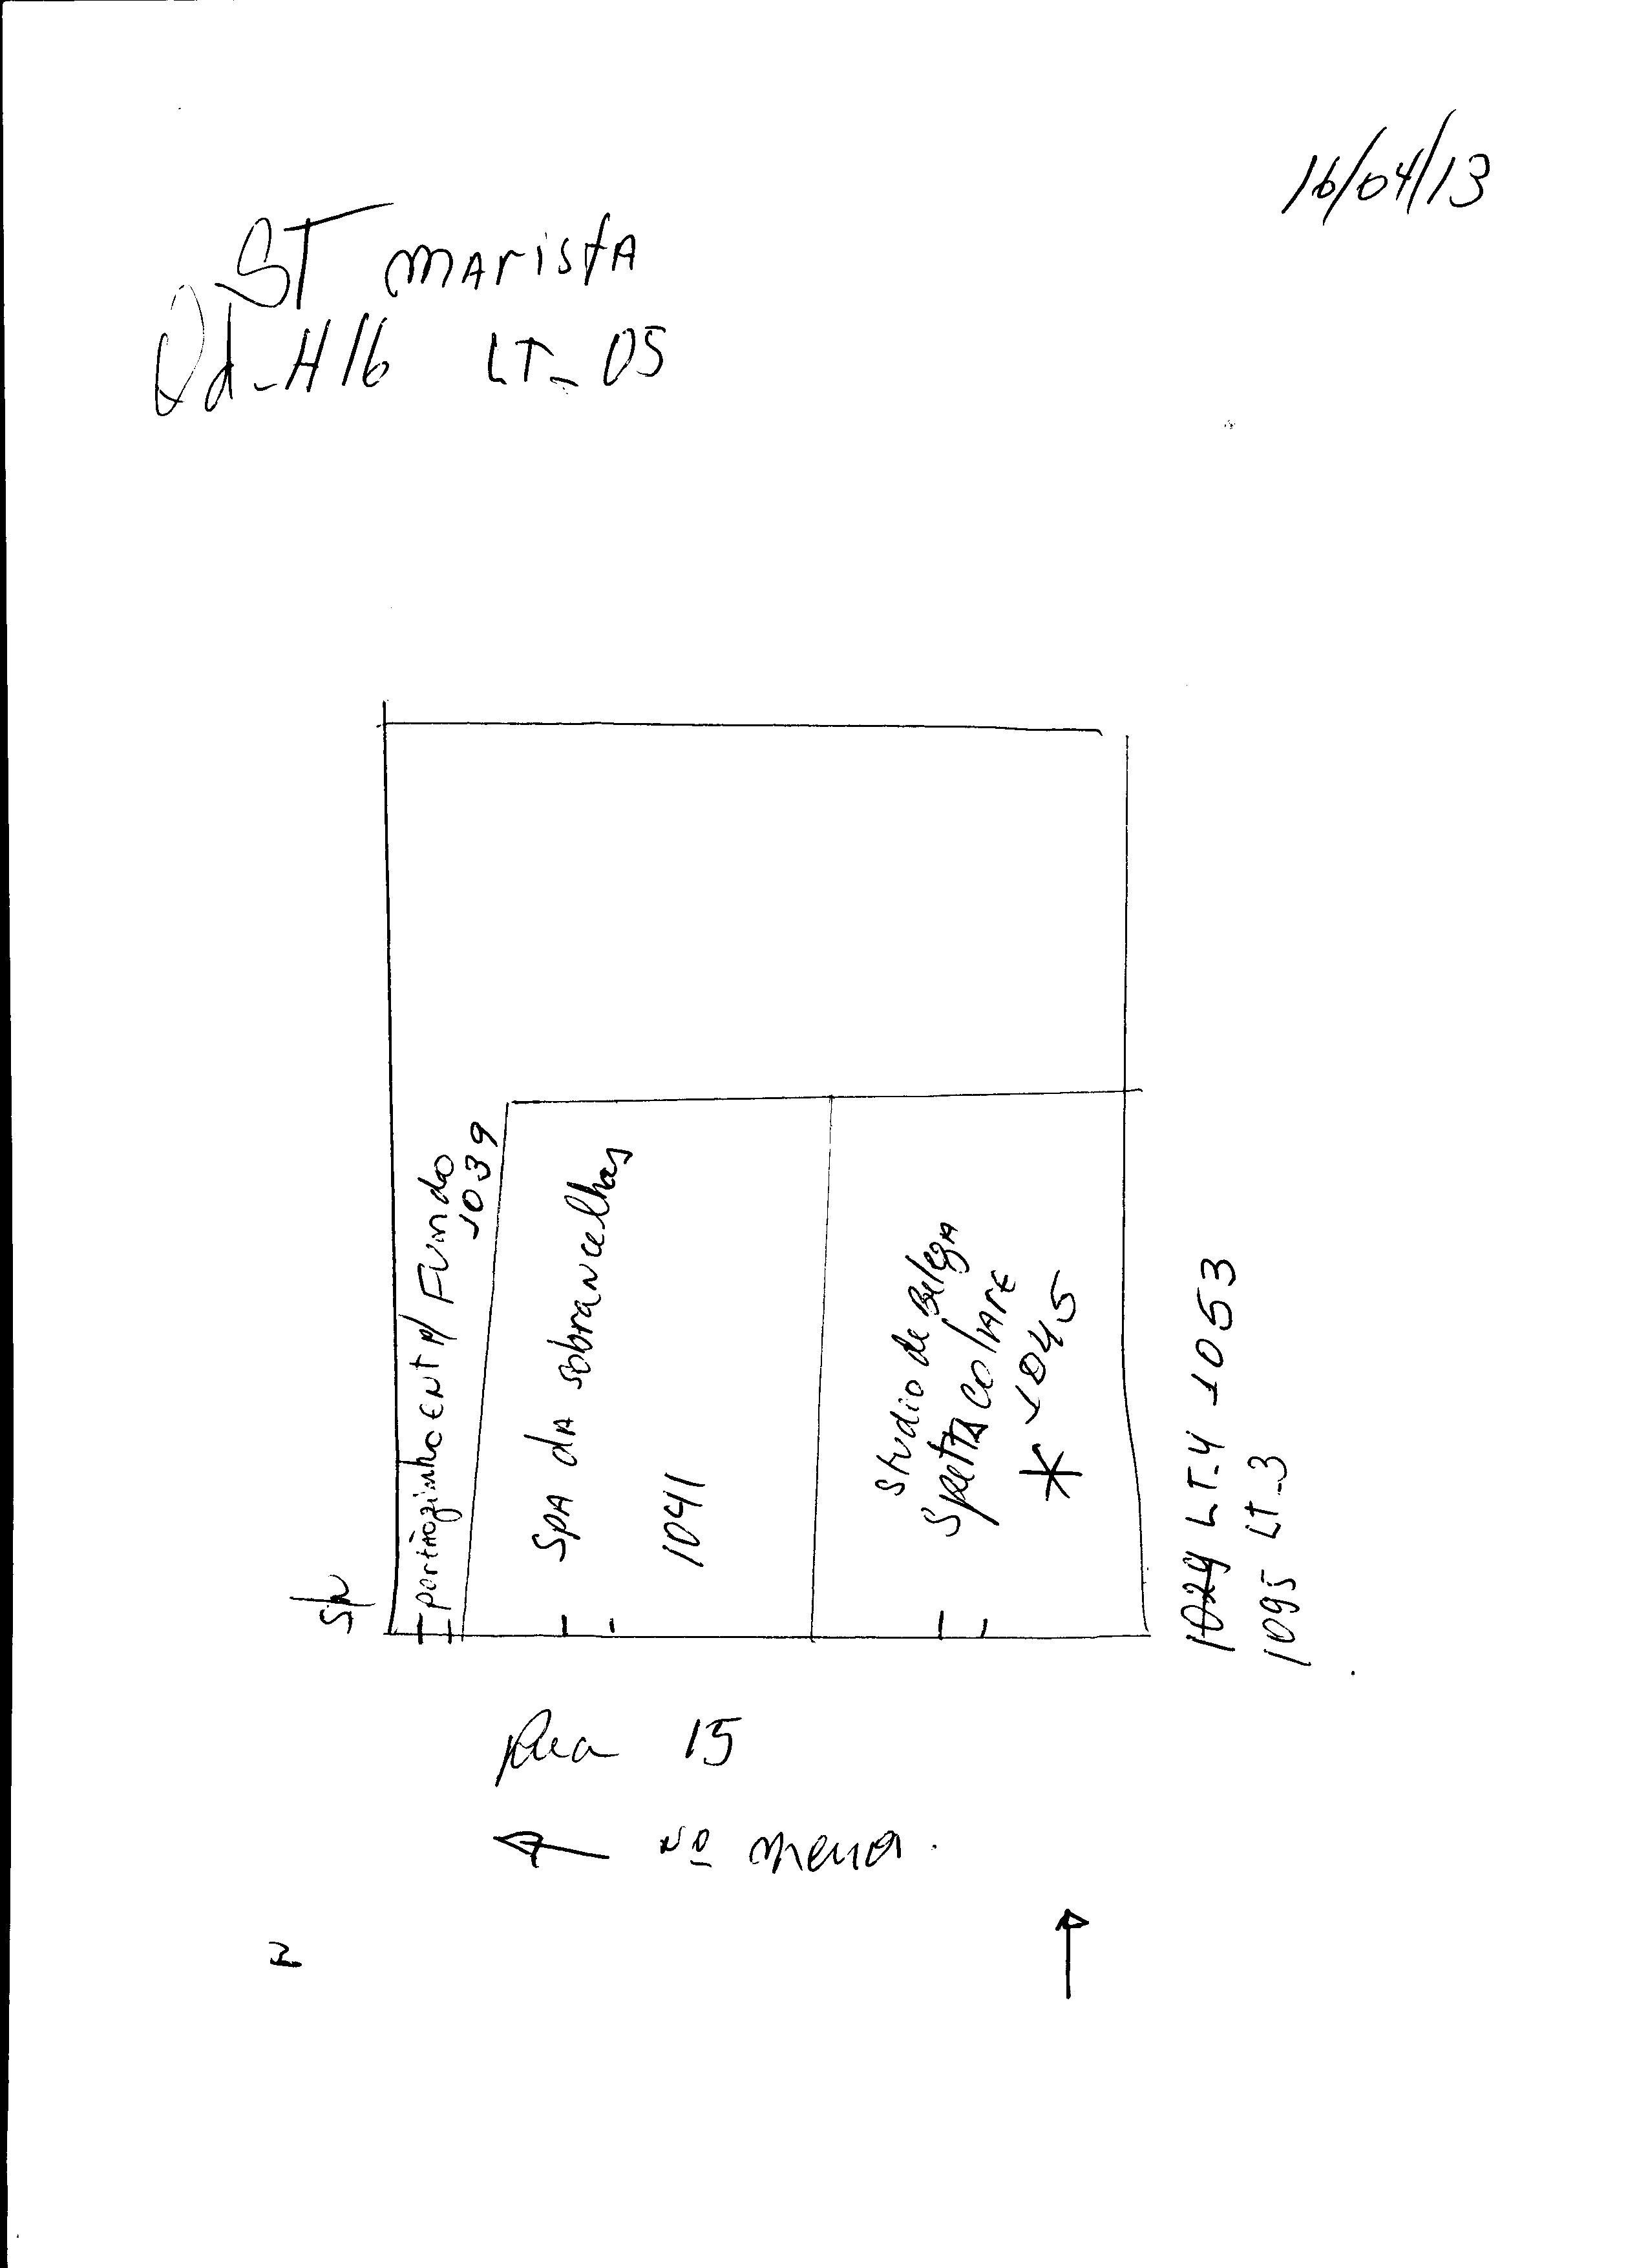 16/04/13
ST MARISTA
Qd-H16 LT-05
portãozinho ENT p/ Fundo
1039
SPA dA sobrancelhas
1041
Studio de Beleza
SpettacoliARE
* 1045
1029 LT-4 1053
1095 LT-3
S/N
Rua 15
← Nº menor